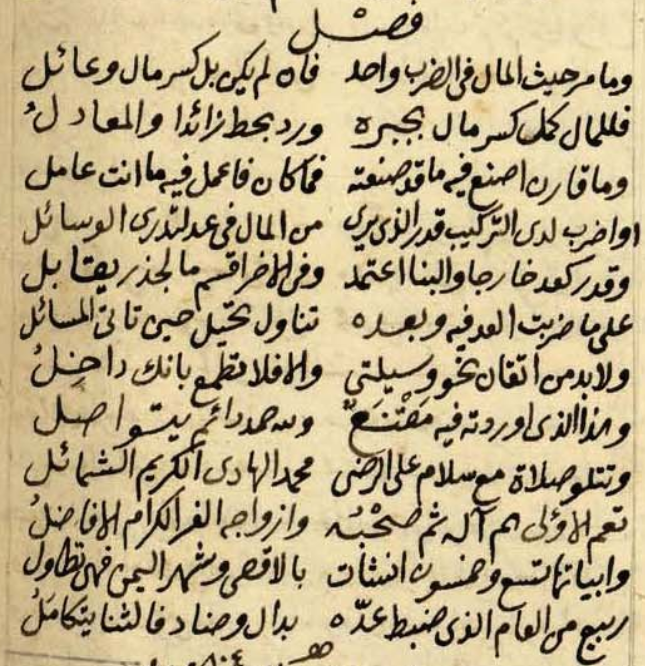 فصل
وما مر حيث المال في الضرب واحد فان لم يكن بل كسر مال وعائل
فللمال كمل كسر مال بجبره ورد بحط زائدا والمعادل
وما قارن اصنع فيه ما قد صنعته فما كان فاعمل فيه ما انت عامل
او اضرب لدى التركيب قدر الذي يرى من المال في عد لتدرى الوسائل
وقدر كعد خارجا والبنا اعتمد وفى الاخر اقسم ما لجذر يقابل
على ما ضربت العد فيه وبعده تناول تخيل حين تاتى المسائل
ولابد من اتقان نحو وسيلتي والا فلا تطمع بانك داخل
وهذا الذى اوردته فيه مقنع ولله حمد دائم يتواصل
وتتلو صلاة مع سلام على الرضى محمد الهادى الكريم الشمائل
تعم الاولى هم آله ثم صحبه وازواجه الغر الكرام الافاضل
وابياتها تسع وخمسون انشات بالاقصى وشهر اليمن فهى تطاول
ربيع من العام الذى ضبط عده بدال وضاد فالثنا يتكامل